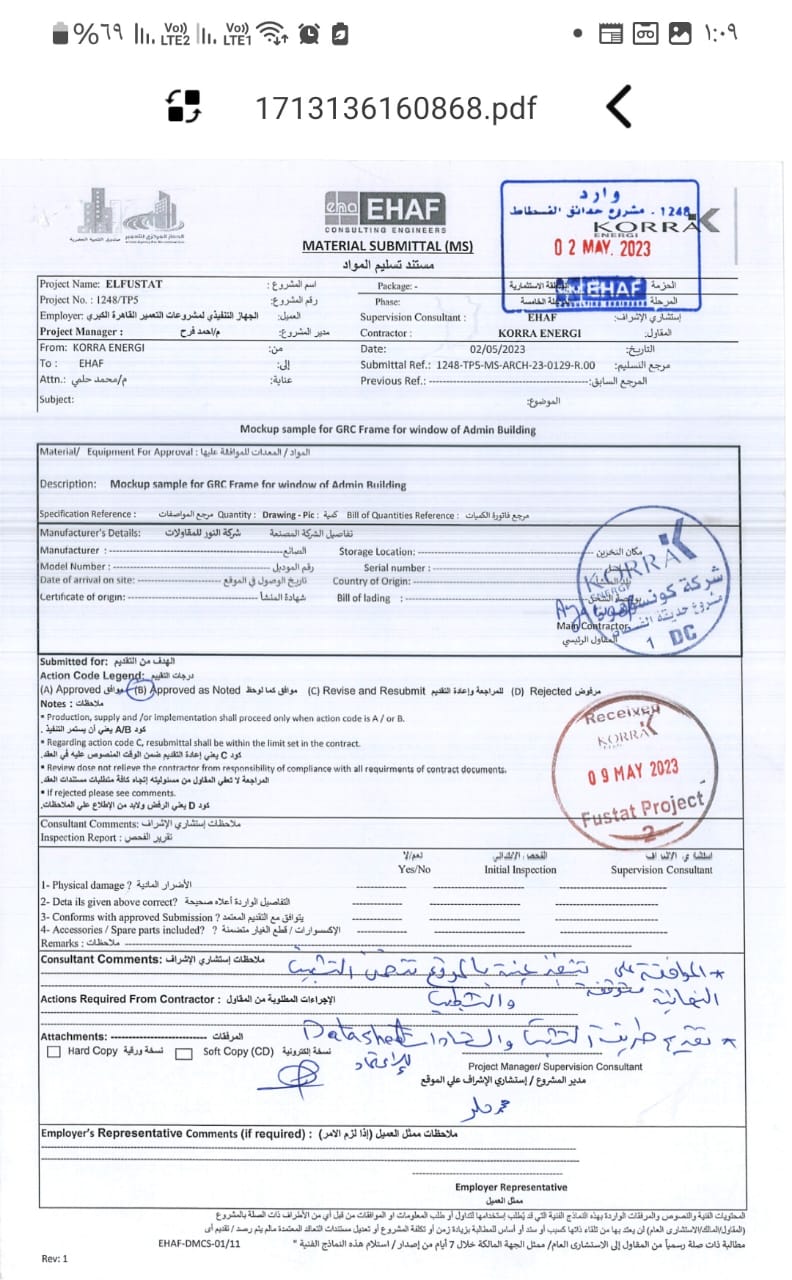 %٦٩ Vo)) LTE2 Vo)) LTE1 ١:٠٩
1713136160868.pdf
eha EHAF
CONSULTING ENGINEERS
MATERIAL SUBMITTAL (MS)
مستند تسليم المواد
وارد
1248 - مشروع حدائق الفسطاط
KORRA
ENERGI
02 MAY. 2023
EHAF
Project Name: ELFUSTAT اسم المشروع: Package: - الحزمة
Project No. : 1248/TP5 رقم المشروع: Phase: المرحلة الخامسة
Employer: الجهاز التنفيذي لمشروعات التعمير القاهرة الكبري العميل: Supervision Consultant : EHAF إستشاري الإشراف:
Project Manager : م/احمد فرج مدير المشروع: Contractor : KORRA ENERGI المقاول:
From: KORRA ENERGI من: Date: 02/05/2023 التاريخ:
To : EHAF إلى: Submittal Ref.: 1248-TP5-MS-ARCH-23-0129-R.00 مرجع التسليم:
Attn.: م/محمد حلمي عناية: Previous Ref.: المرجع السابق:
Subject: الموضوع:
Mockup sample for GRC Frame for window of Admin Building
Material/ Equipment For Approval : المواد / المعدات للموافقة عليها:
Description: Mockup sample for GRC Frame for window of Admin Building
Specification Reference : مرجع المواصفات Quantity : كمية Drawing - Pic : Bill of Quantities Reference : مرجع فاتورة الكميات
Manufacturer's Details: شركة النور للمقاولات تفاصيل الشركة المصنعة
Manufacturer : الصانع Storage Location: مكان التخزين
Model Number : رقم الموديل Serial number :
Date of arrival on site: تاريخ الوصول في الموقع Country of Origin:
Certificate of origin: شهادة المنشأ Bill of lading :
KORRA
ENERGI
Main Contractor
المقاول الرئيسي
1 DC
Submitted for: الهدف من التقديم:
Action Code Legend: درجات التقييم:
(A) Approved موافق (B) Approved as Noted موافق كما لوحظ (C) Revise and Resubmit للمراجعة وإعادة التقديم (D) Rejected مرفوض
Notes : ملاحظات:
* Production, supply and /or implementation shall proceed only when action code is A / or B.
كود A/B يعني أن يستمر التنفيذ.
* Regarding action code C, resubmittal shall be within the limit set in the contract.
كود C يعني إعادة التقديم ضمن الوقت المنصوص عليه في العقد.
* Review dose not relieve the contractor from responsibility of compliance with all requirments of contract documents.
المراجعة لا تعفي المقاول من مسئوليته إتجاه كافة متطلبات مستندات العقد.
* If rejected please see comments.
كود D يعني الرفض ولابد من الإطلاع علي الملاحظات.
Received
KORRA
09 MAY 2023
Fustat Project
2
Consultant Comments: ملاحظات إستشاري الإشراف:
Inspection Report : تقرير الفحص:
نعم/لا الفحص الإبتدائي إستشاري الإشراف
Yes/No Initial Inspection Supervision Consultant
1- Physical damage ? الأضرار المادية ?
2- Deta ils given above correct? التفاصيل الواردة أعلاه صحيحة ?
3- Conforms with approved Submission ? يتوافق مع التقديم المعتمد ?
4- Accessories / Spare parts included? الإكسسوارات / قطع الغيار متضمنة ?
Remarks : ملاحظات:
Consultant Comments: ملاحظات إستشاري الإشراف:
* الموافقة على تنفيذ عينة بالموقع
النهائية
Actions Required From Contractor : الإجراءات المطلوبة من المقاول:
* تقديم طريقة التثبيت Datasheet
للإعتماد
Attachments: المرفقات
Hard Copy نسخة ورقية Soft Copy (CD) نسخة إلكترونية
Project Manager/ Supervision Consultant
مدير المشروع / إستشاري الإشراف علي الموقع
Employer's Representative Comments (if required) : ملاحظات ممثل العميل (إذا لزم الامر) :
Employer Representative
ممثل العميل
المحتويات الفنية والنصوص والمرفقات الواردة بهذه النماذج الفنية التي قد يُطلب إستخدامها لتداول أو طلب المعلومات او الموافقات من قبل أي من الأطراف ذات الصلة بالمشروع
(المقاول/المالك/الاستشاري العام) لن يعتد بها من تلقاء ذاتها كسبب أو سند أو أساس للمطالبة بزيادة زمن أو تكلفة المشروع أو تعديل مستندات التعاقد المعتمدة مالم يتم رصد / تقديم أي
مطالبة ذات صلة رسمياً من المقاول إلى الاستشاري العام/ ممثل الجهة المالكة خلال 7 أيام من إصدار / استلام هذه النماذج الفنية "
EHAF-DMCS-01/11
Rev: 1